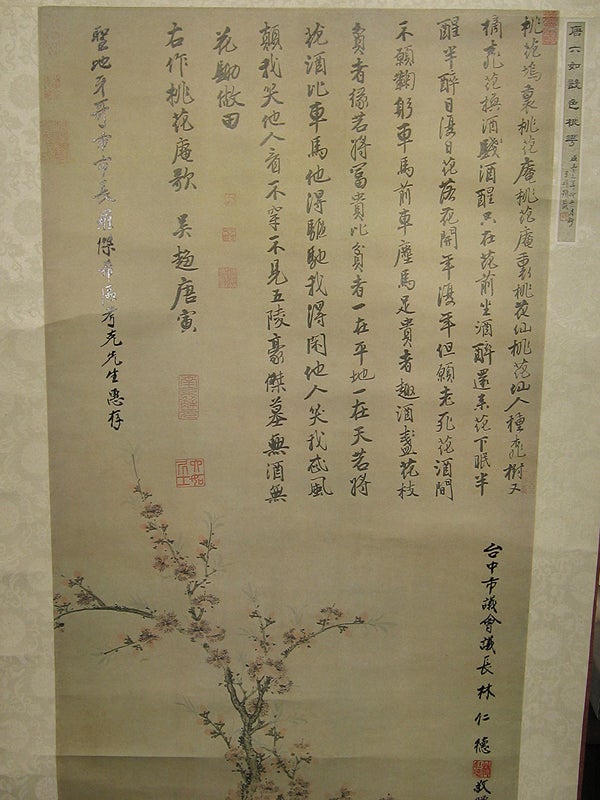 唐六如設色桃華
桃花塢裏桃花庵桃花庵裏桃花仙桃花仙人種桃樹又
摘桃花換酒錢酒醒只在花前坐酒醉還来花下眠半
醒半醉日復日花落花開年復年但願老死花酒間
不願鞠躬車馬前車塵馬足貴者趣酒盞花枝
貧者緣若將富貴比貧者一在平地一在天若將
花酒比車馬他得驅馳我得閑他人笑我忒風
顛我笑他人看不穿不見五陵豪傑墓無酒無
花鋤做田
右作桃花庵歌 吳趨唐寅
六如居士
聖地牙哥市市長羅傑希區考克先生惠存
台中市議會議長林仁德 敬